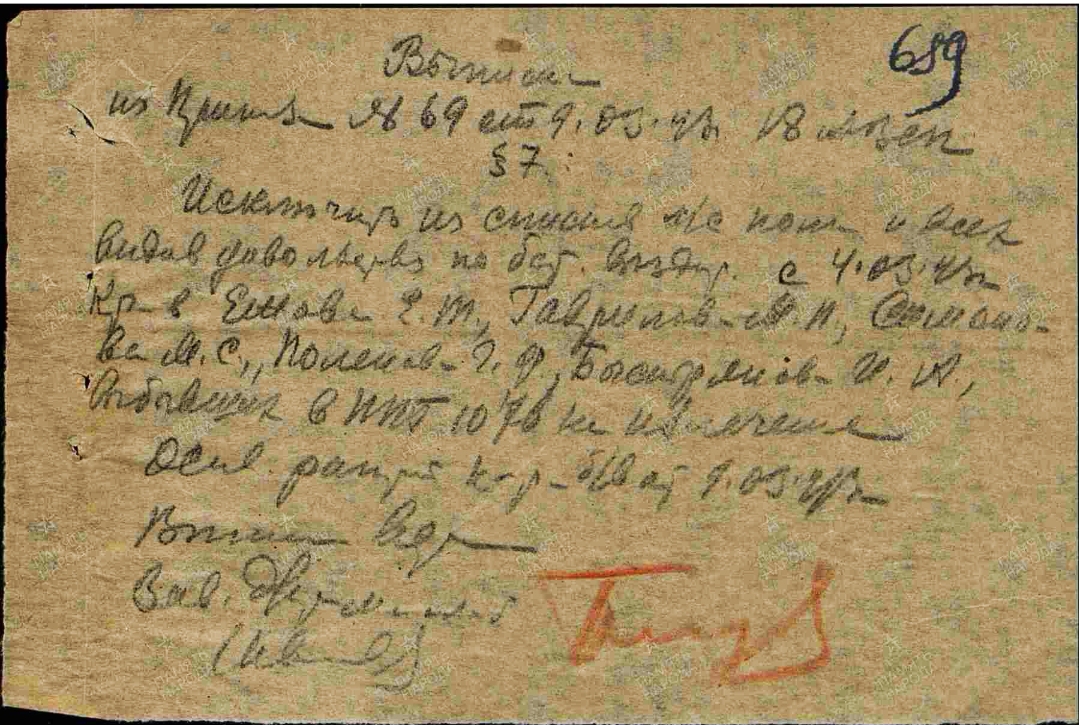 689
Выписка
из Приказа № 69 от 9.03.43г. 18 азсп
§ 7.
Исключить из списка л/с полка и всех
видов довольствия по бат. выздор. с 4.03.43г.
Кр-в Ежова Е.Т., Гаврилова М.П., Симоно-
ва М.С., Поленова Г.Ф., Быстрякова И.А.,
выбывших в ППГ 1076 на излечение
Осн. рапорт к-р б/в от 9.03.43г.
Выписка верна
Зав. делопроизв